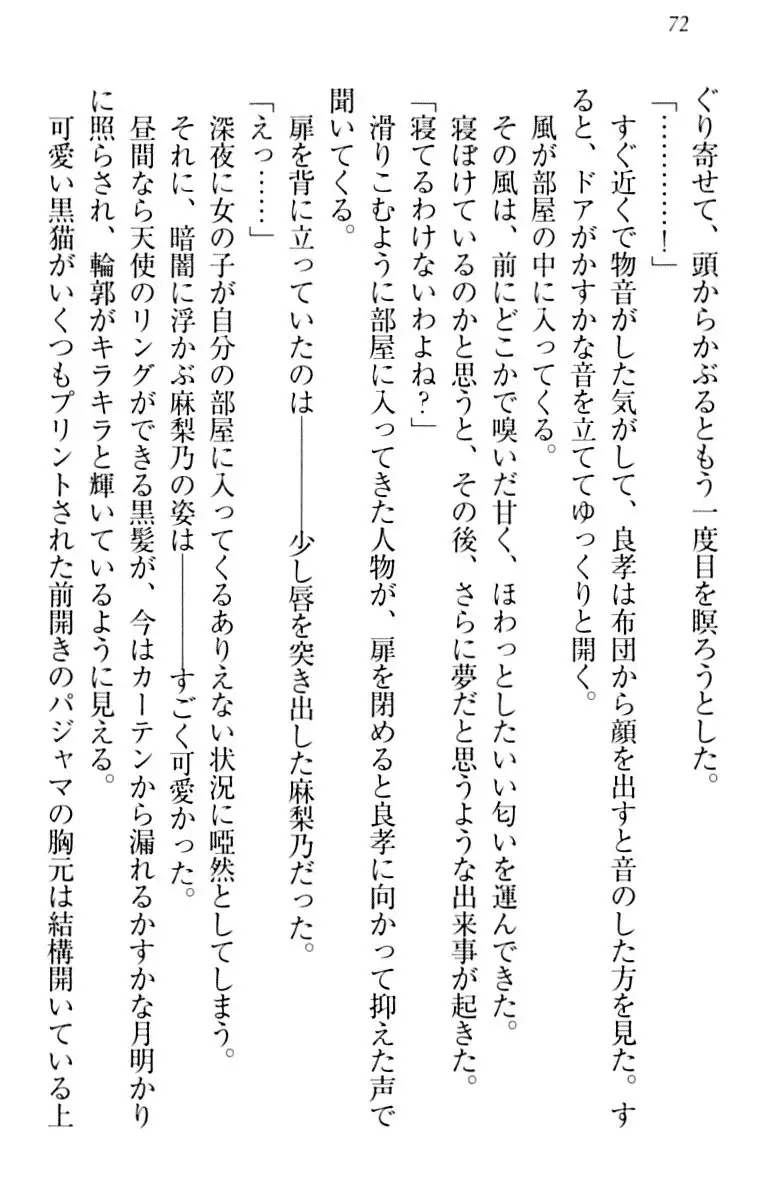 72
ぐり寄せて、頭からかぶるともう一度目を瞑ろうとした。
「…………！」
すぐ近くで物音がした気がして、良孝は布団から顔を出すと音のした方を見た。す
ると、ドアがかすかな音を立ててゆっくりと開く。
風が部屋の中に入ってくる。
その風は、前にどこかで嗅いだ甘く、ほわっとしたいい匂いを運んできた。
寝ぼけているのかと思うと、その後、さらに夢だと思うような出来事が起きた。
「寝てるわけないわよね？」
滑りこむように部屋に入ってきた人物が、扉を閉めると良孝に向かって抑えた声で
聞いてくる。
扉を背に立っていたのは――少し唇を突き出した麻梨乃だった。
「えっ……」
深夜に女の子が自分の部屋に入ってくるありえない状況に啞然としてしまう。
それに、暗闇に浮かぶ麻梨乃の姿は――すごく可愛かった。
昼間なら天使のリングができる黒髪が、今はカーテンから漏れるかすかな月明かり
に照らされ、輪郭がキラキラと輝いているように見える。
可愛い黒猫がいくつもプリントされた前開きのパジャマの胸元は結構開いている上